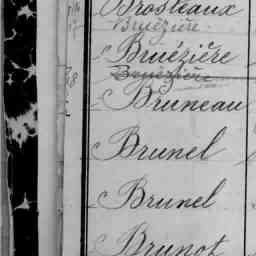 Brosteaux
Bruézière
Bruézière
Bruézière
Bruneau
Brunel
Brunel
Brunot